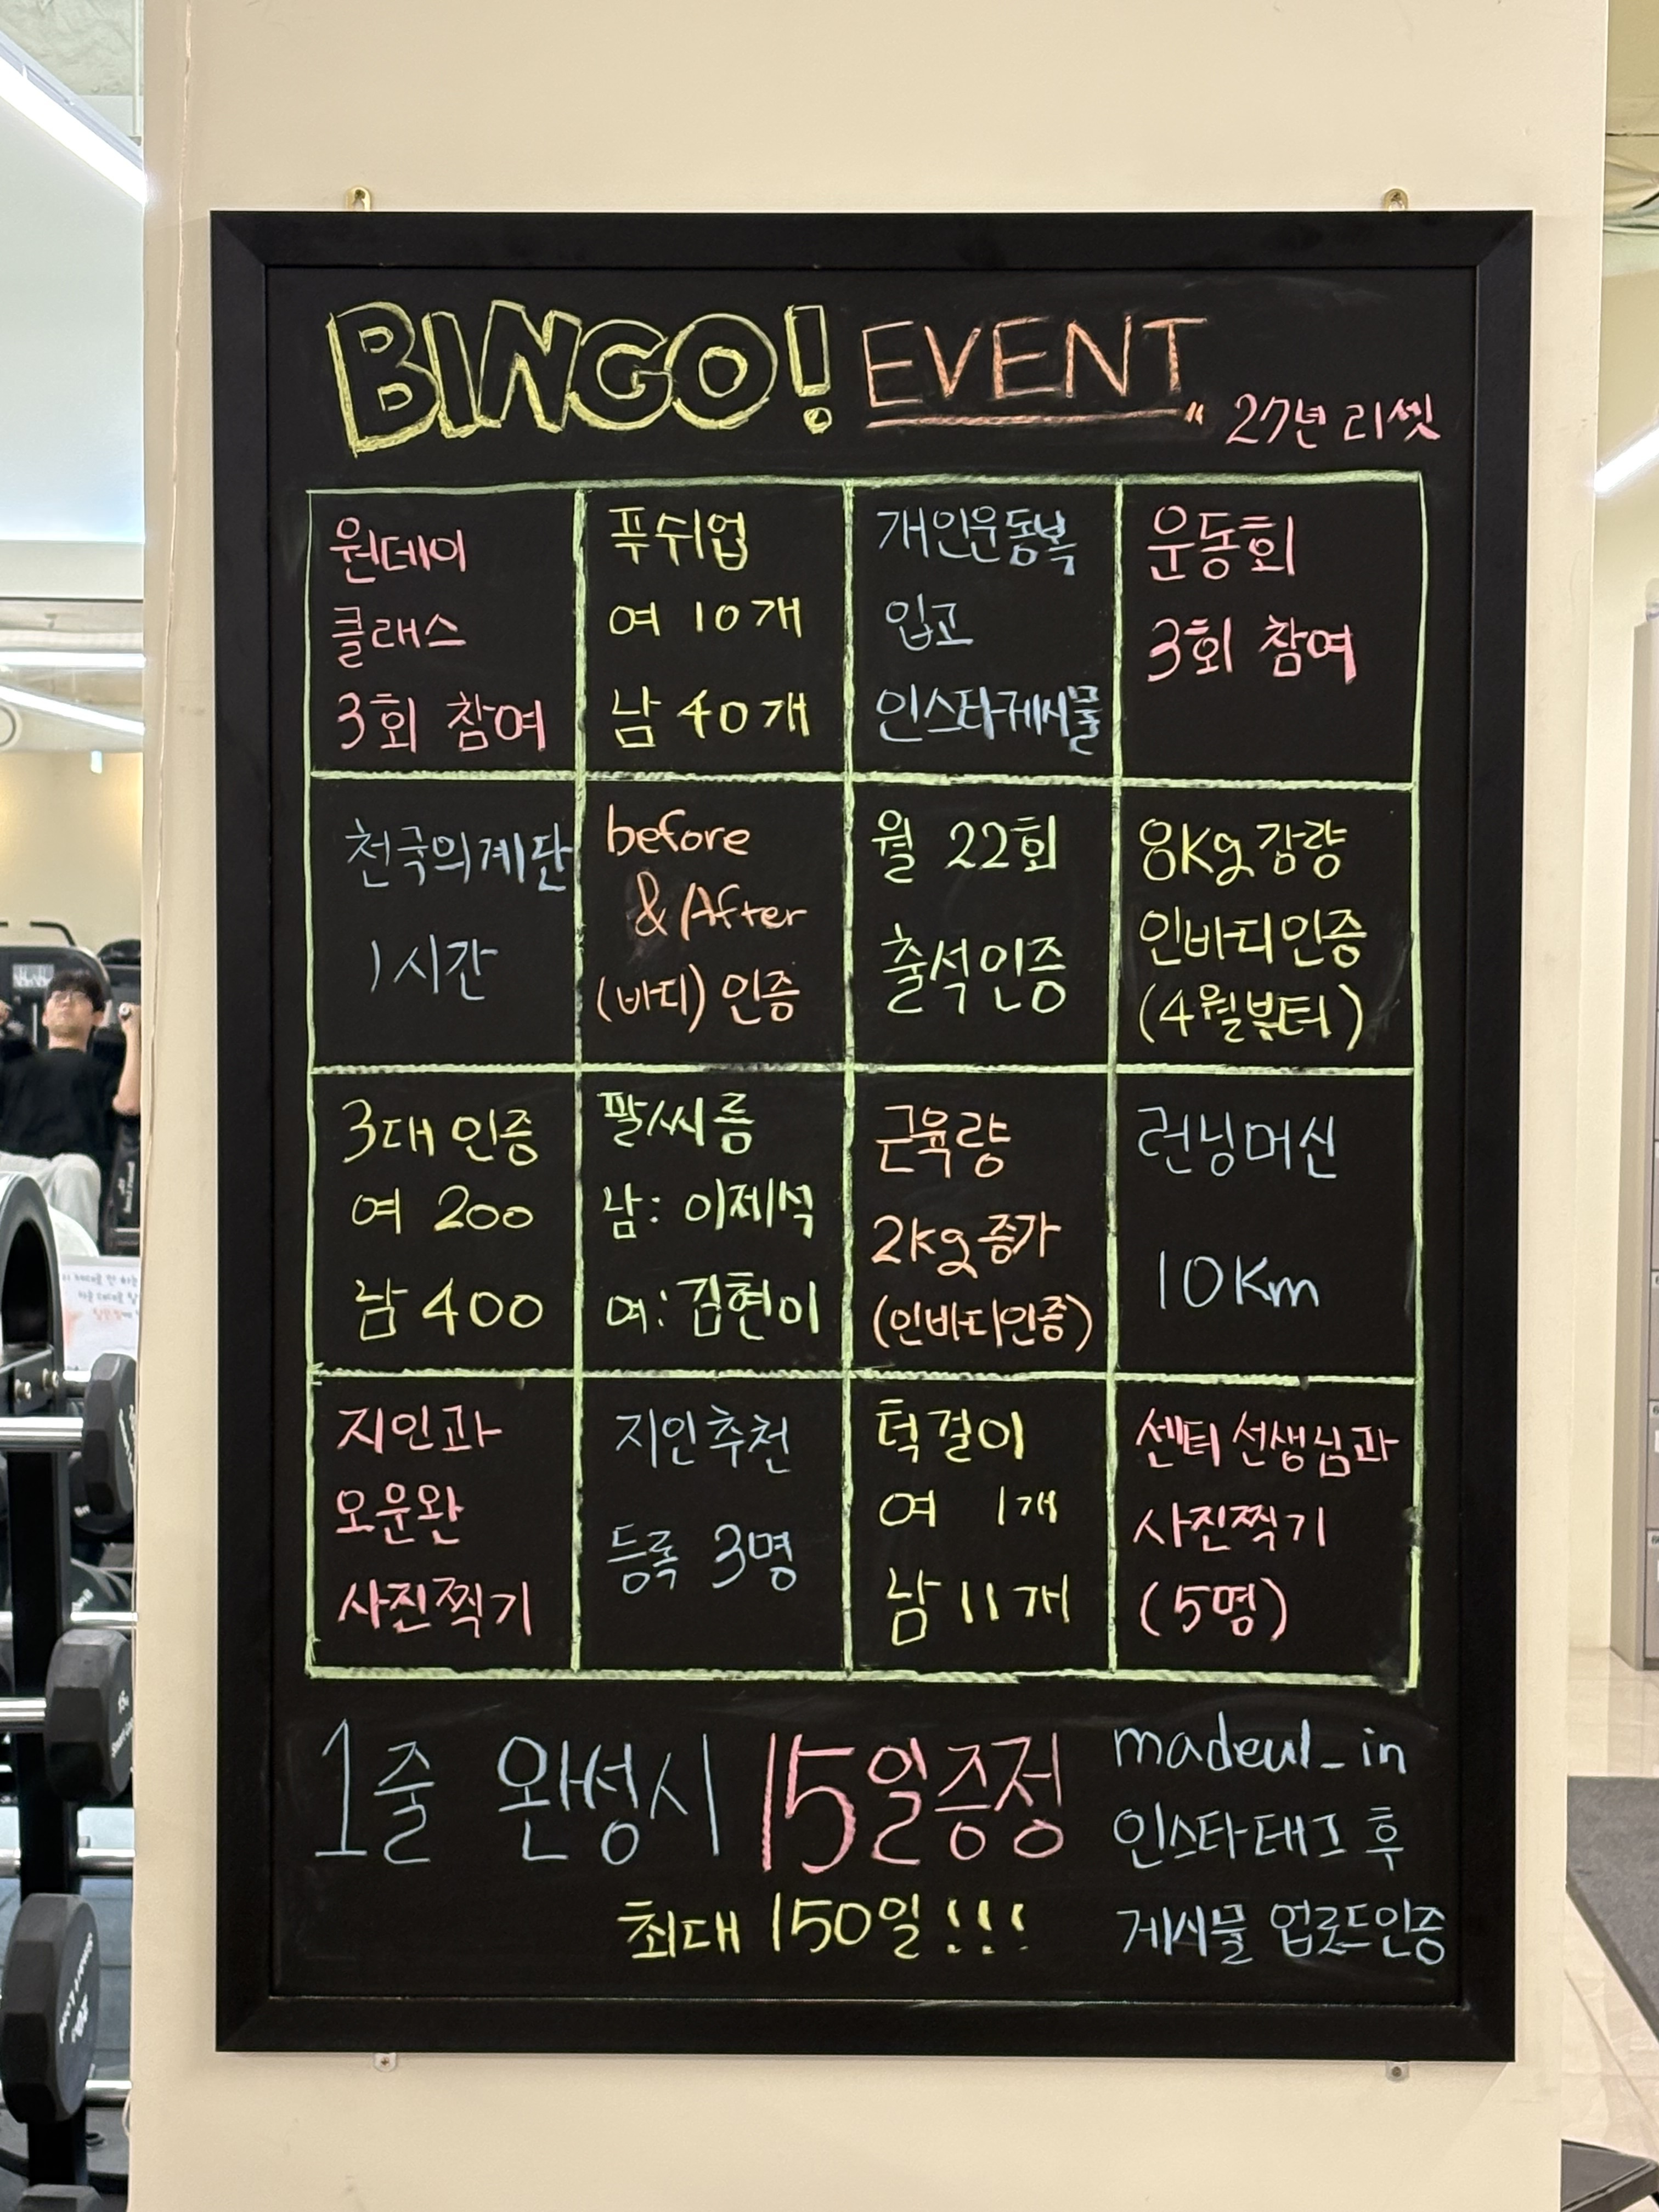 BINGO! EVENT 27년 리셋
원데이
클래스
3회 참여
푸쉬업
여 10개
남 40개
개인운동복
입고
인스타게시물
운동회
3회 참여
천국의계단
1시간
before
& After
(바디) 인증
월 22회
출석인증
8Kg 감량
인바디인증
(4월부터)
3대 인증
여 200
남 400
팔씨름
남: 이제석
여: 김현이
근육량
2kg 증가
(인바디인증)
런닝머신
10Km
지인과
오운완
사진찍기
지인추천
등록 3명
턱걸이
여 1개
남 11개
센터 선생님과
사진찍기
(5명)
1줄 완성시 15일증정
최대 150일!!!
madeul_in
인스타태그 후
게시물 업로드인증